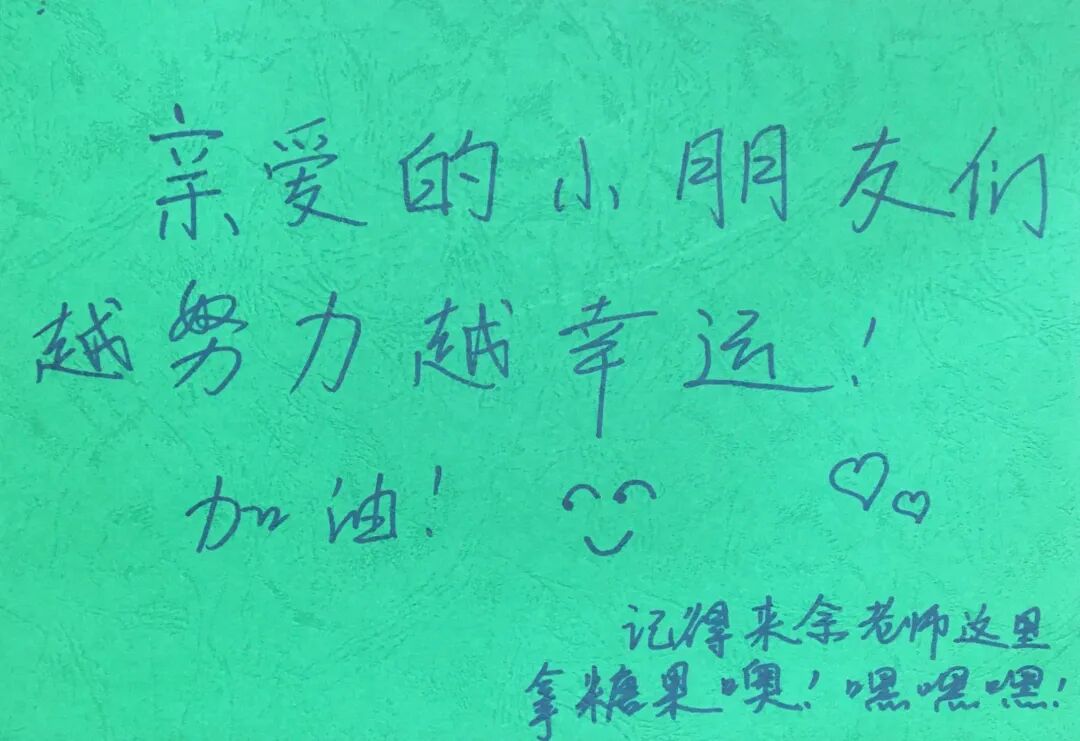 亲爱的小朋友们
越努力越幸运!
加油!
记得来余老师这里
拿糖果噢!嘿嘿嘿!